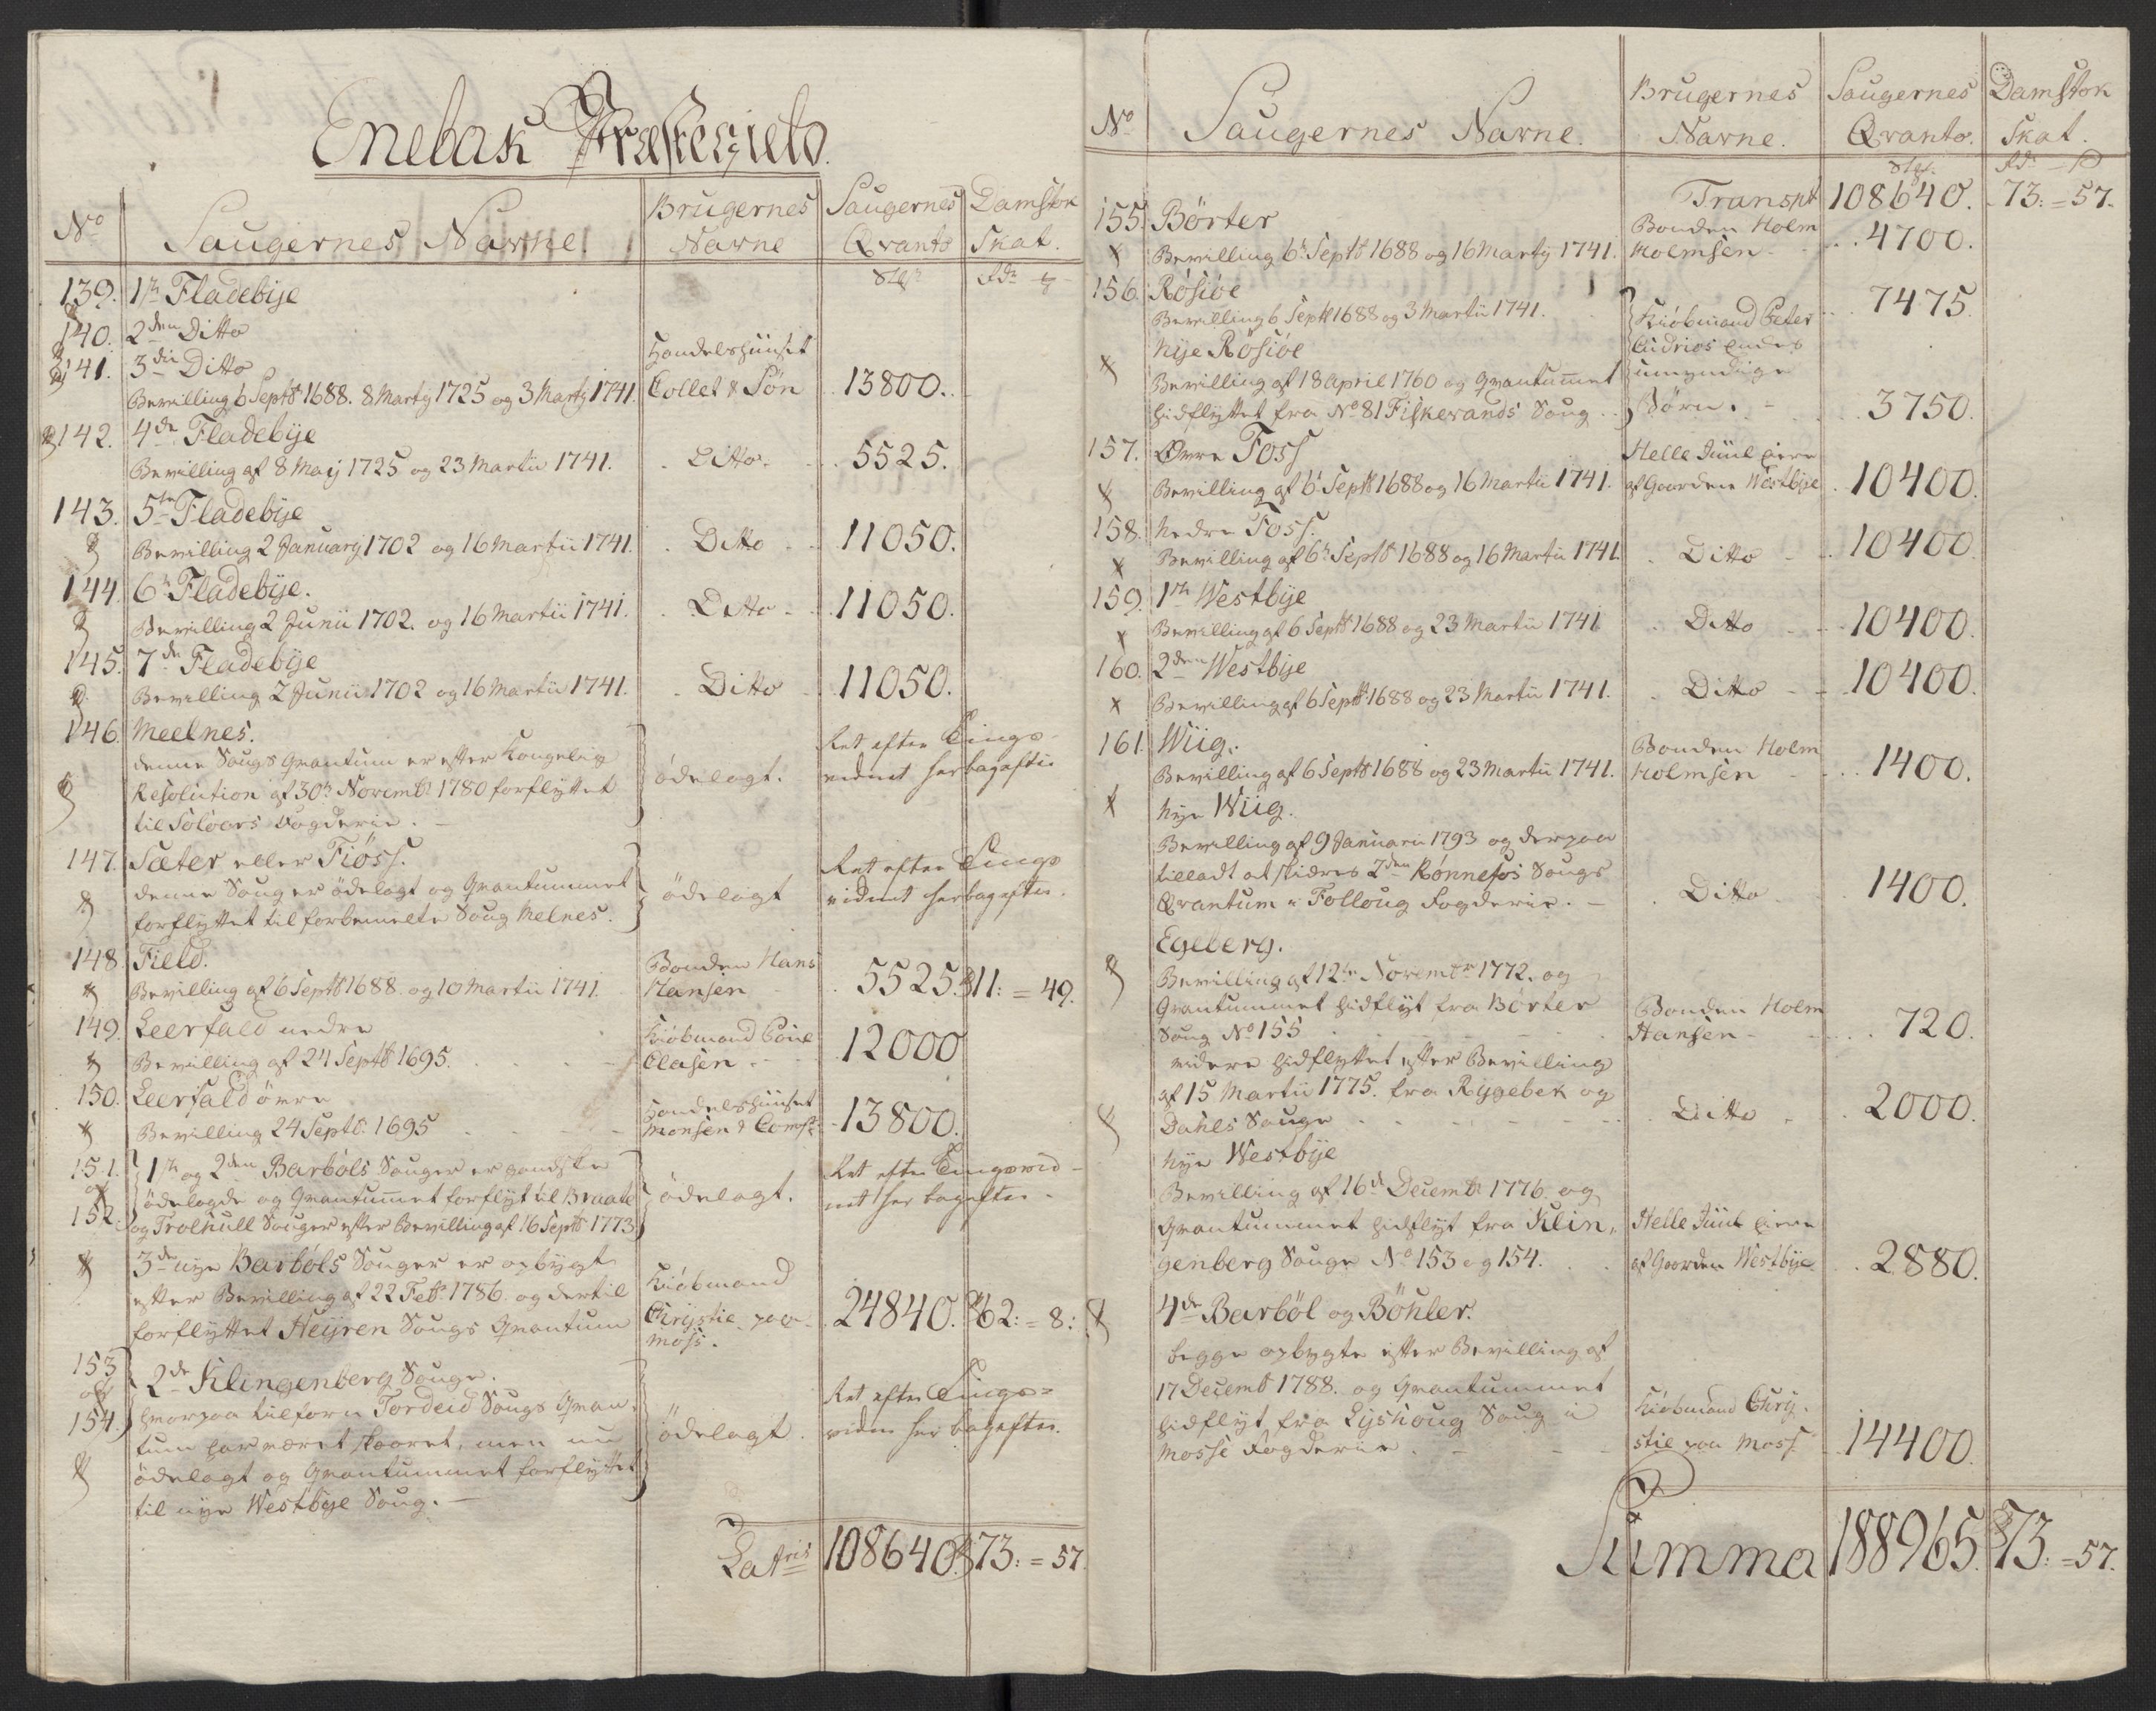 Enebak Præstegield.
No
Saugernes Navne.
Brugernes Navne
Saugernes Qvanto
Damstok Skat.
139. 1ste Fladebije
140. 2den Ditto
141. 3die Ditto
Bevilling 6 Septbr 1688. 8 Martij 1725 og 3 Martij 1741. Handelshuuset Collet & Søn 13800.
142. 4de Fladebije
Bevilling af 8 Maij 1725 og 23 Martii 1741. Ditto. 5525.
143. 5te Fladebije
Bevilling 2 Januarij 1702 og 16 Martii 1741. Ditto 11050.
144. 6te Fladebije.
Bevilling 2 Junii 1702. og 16 Martii 1741. Ditto 11050.
145. 7de Fladebije
Bevilling 2 Junii 1702 og 16 Martii 1741. Ditto 11050.
146. Meelnes.
denne Saugs Qvantum er efter Kongelig
Resolution af 30te Novembr 1780 forflyttet
til Soloers Fogderie.
ödelagt.
efter Tings-
vidnet her bagefter
147. Sæter eller Fiöss.
denne Saug er ödelagt og Qvantummet
forflyttet til forbemelte Saug Melnes.
ödelagt
efter Tings
vidnet her bagefter.
148. Field.
Bevilling af 6 Septbr 1688. og 10 Martii 1741. Bonden Hans Hansen 5525. 11: = 49.
149. Leerfald nedre
Bevilling af 24 Septbr 1695. Kiöbmand Poul Clasen 12000
150. Leerfald övre
Bevilling 24 Septbr. 1695 Handelshuuset Monsen & Comp: 13800.
151. og 152. 1ste og 2den Barböls Sauger er gandske
ödelagde og Qvantummet forflyt til Braate
og Trolhull Sauger efter Bevilling af 16 Septbr 1773
ödelagt.
efter Tingsvid-
net her bagefter.
3die nye Barböls Sauger er opbygt
efter Bevilling af 22 Febr 1786. og dertil
forflyttet Heyren Saugs Qvantum
Kiöbmand Chrystie paa Moss.
24840. 62: = 8:
153 og 154. 2de Klingenberg Sauge.
hvorpaa tilforn Tordeid Saugs Qvan-
tum har været skaaret, men nu
ödelagt og Qvantummet forflyttet
til nye Westbye Saug.
ödelagt.
efter Tings-
vidne her bagefter.
Latris 108640. 73: = 57.
No
Saugernes Navne.
Brugernes Navne.
Saugernes Qvanto.
Damstok Skat.
Transpt 108640. 73: = 57.
155. Börter
Bevilling 6te Septbr 1688 og 16 Martij 1741. Bonden Holm Holmsen 4700.
156. Rösiöe
Bevilling 6 Septbr 1688 og 3 Martii 1741. 7475
Nÿe Rösiöe
Bevilling af 18 April 1760 og Qvantummet
hidflyttet fra No 81 Fiskevands Saug
Kiöbmand Peter
umyndige
Börn. 3750.
157. Övre Foss
Bevilling af 6te Septbr 1688 og 16 Martii 1741. Helle Juul Eiere af Gaarden Westbye 10400.
158. Nedre Foss.
Bevilling af 6te Septbr 1688 og 16 Martii 1741. Ditto 10400
159. 1ste Westbÿe
Bevilling af 6 Septbr 1688 og 23 Martii 1741 Ditto 10400
160. 2den Westbÿe
Bevilling af 6 Septbr 1688 og 23 Martii 1741. Ditto 10400.
161. Wiig.
Bevilling af 6 Septbr 1688 og 23 Martii 1741. Bonden Holm Holmsen 1400.
Nÿe Wiig.
Bevilling af 9 Januarii 1793 og derpaa
tilladt at skiæres 2den Rönnefos Saugs
Qvantum i Folloug Fogderie. Ditto 1400.
Egeberg.
Bevilling af 12te Novembr 1772. og
Qvantummet hidflyt fra Börter
Saug No 155 Bonden Holm Hansen 720.
videre hidflyttet efter Bevilling
af 15 Martii 1775. fra Rygebek og
Dahls Sauge Ditto 2000.
Nye Westbÿe
Bevilling af 16de Decembr 1776 og
Qvantummet hidflyt fra Klin-
genberg Sauge No 153 og 154. Helle Juul Eiere af Gaarden Westbÿe 2880.
4de Barböl og Böhler.
begge opbygte efter Bevilling af
17 Decembr 1788. og Qvantummet
hidflyt fra Lyshoug Saug i
Mosse Fogderie Kiöbmand Chry-
stie paa Moss 14400.
Summa 188965. 73: = 57.